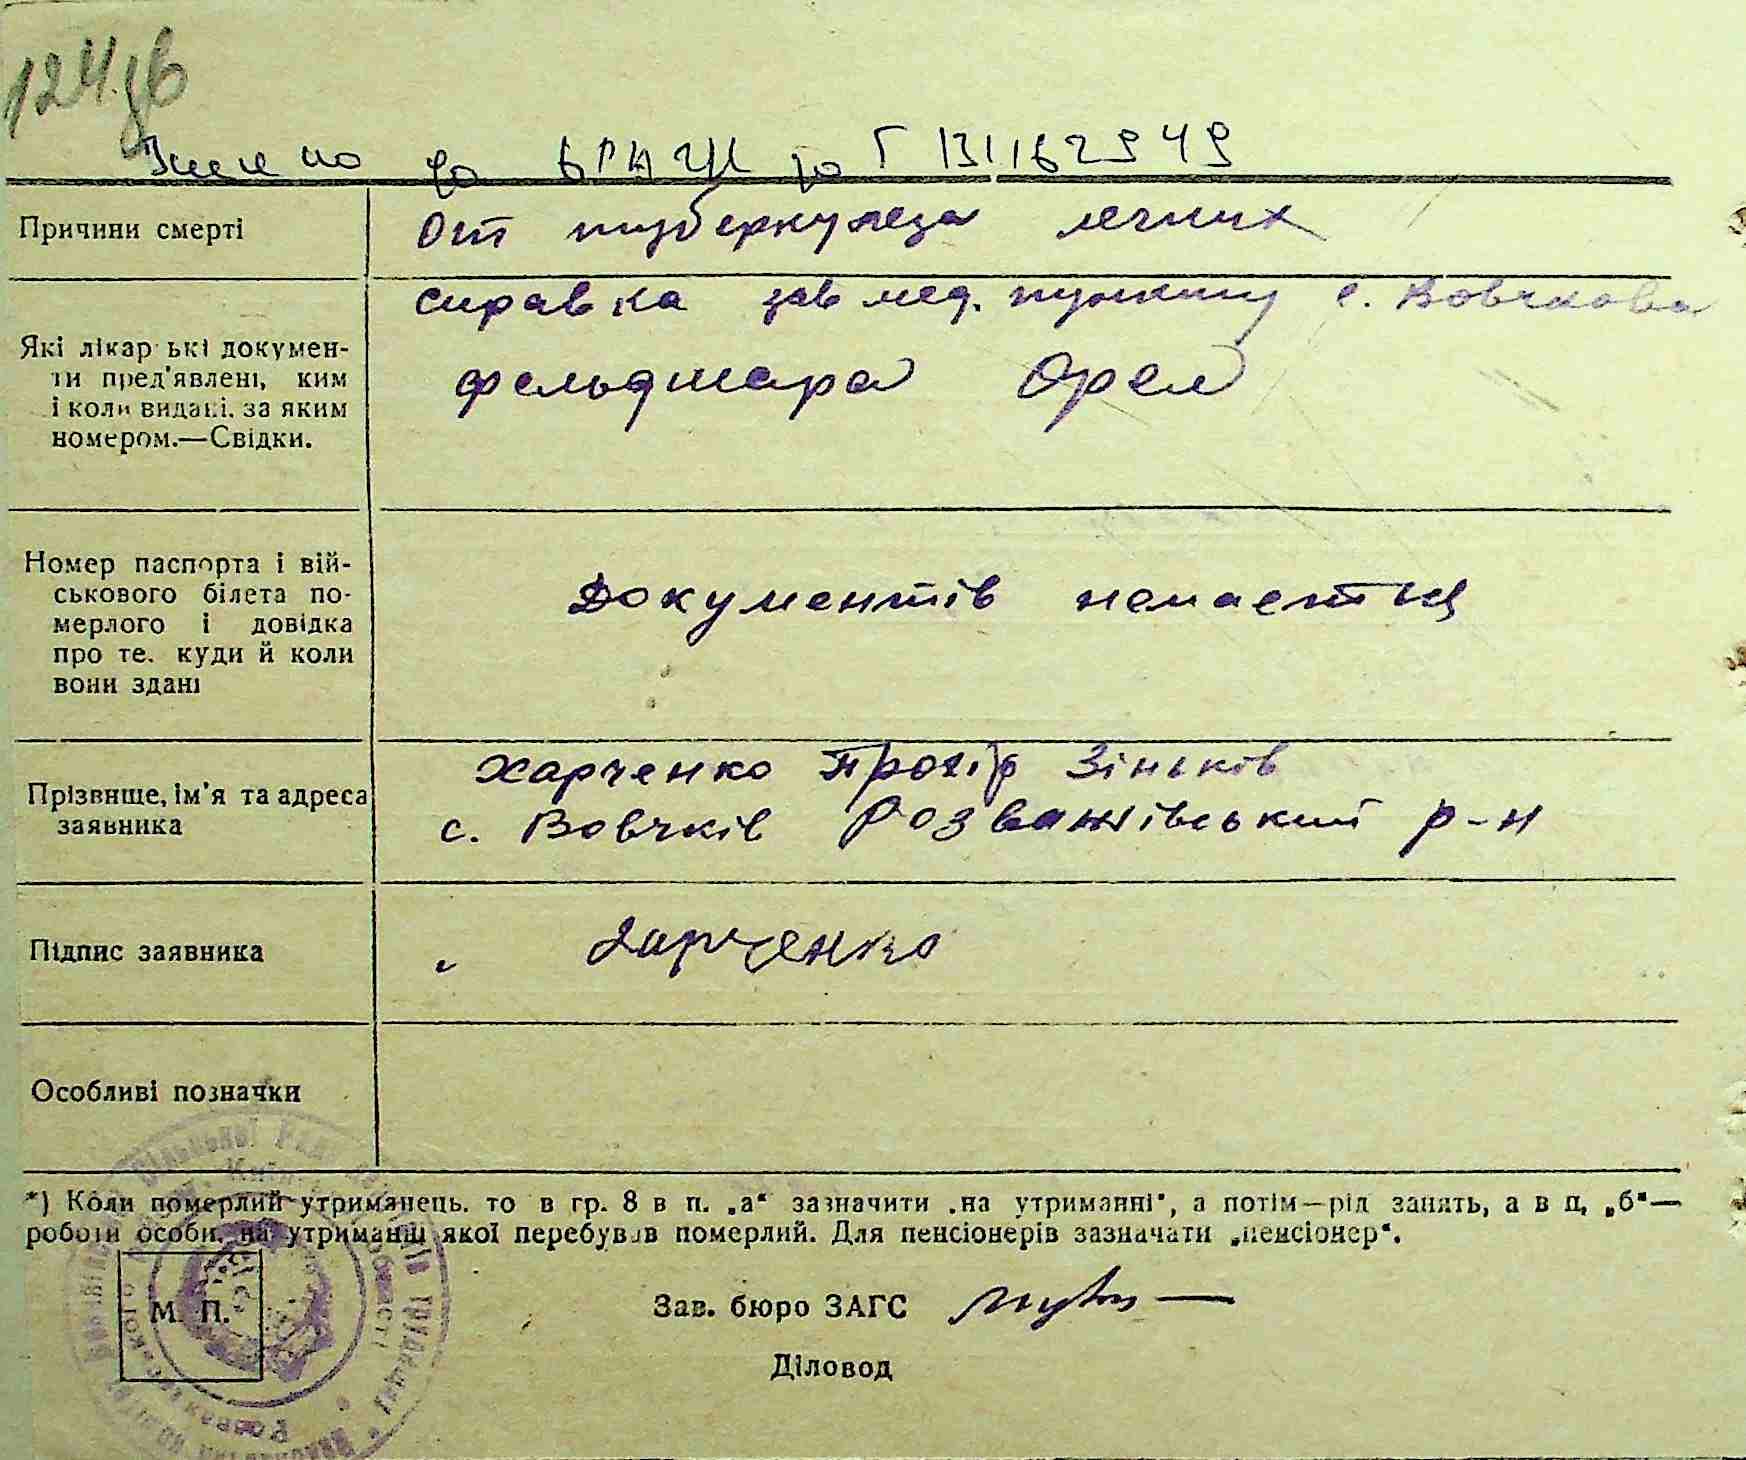 124 зв
до ДРАЦС
Причини смерті
От туберкулеза легких
справка зав мед. пункту с. Вовчкова
фельдшара Орел
Які лікарські докумен-
ти пред'явлені, ким
і коли видані, за яким
номером.—Свідки.
Номер паспорта і вій-
ськового білета по-
мерлого і довідка
про те, куди й коли
вони здані
Документів немаеться
Прізвище, ім'я та адреса
заявника
Харченко Прохір Зіньків
с. Вовчків Розважівський р-н
Підпис заявника
Харченко
Особливі позначки
*) Коли померлий утриманець, то в гр. 8 в п. „а“ зазначити „на утриманні“, а потім—рід занять, а в п. „б“—
роботи особи, на утриманні якої перебував померлий. Для пенсіонерів зазначати „пенсіонер“.
М. П.
Зав. бюро ЗАГС
Діловод